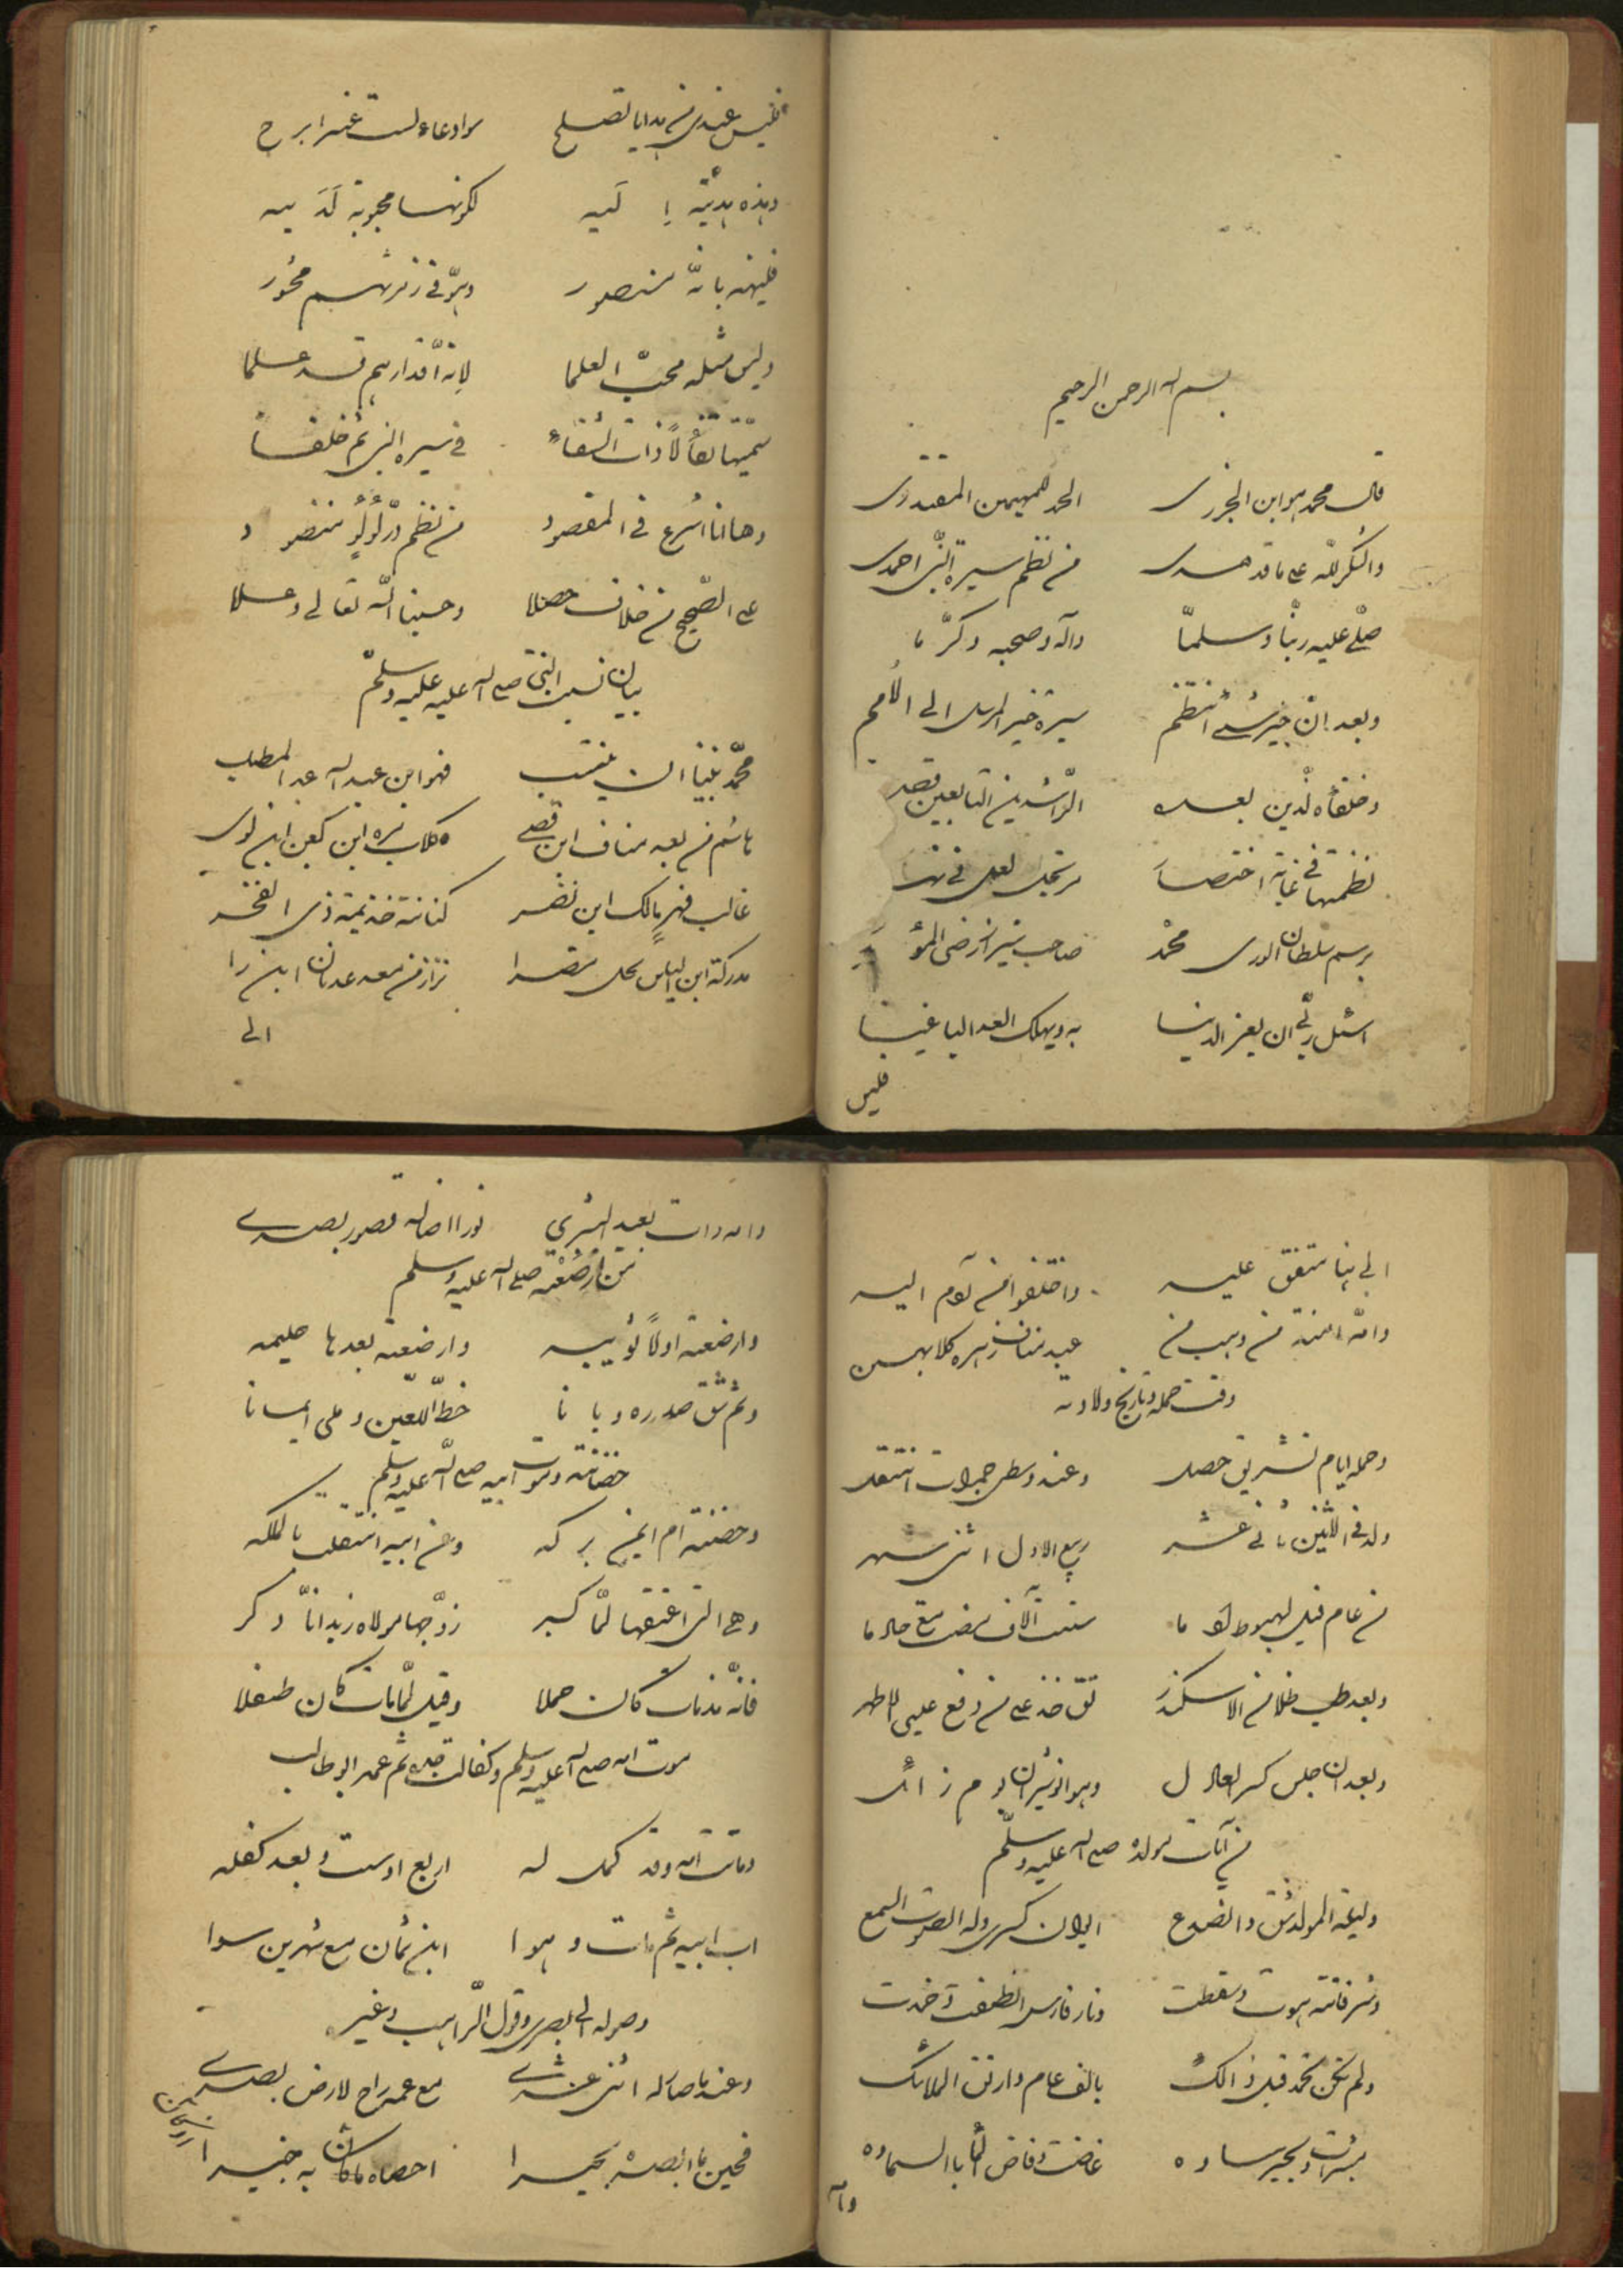 بسم الله الرحمن الرحيم
قال محمد هو ابن الجزرى الحمد للمهيمن المقتدرى
والشكر لله على ما قد هدى من نظم سيرة النبى احمدى
صلى عليه ربنا وسلما وآله وصحبه وكرما
وبعد ان خير شئ انتظم سيرة خير المرسل الى الامم
وخلفاه لذين بعده الراشدين التابعين قصده
نظمتها فى غاية اختصار
برسم سلطان الورى محمد صاحب شيراز رضى المؤيد
اسئل ربى ان يعز الدينا به ويهلك العدا الباغينا
فليس
فليس عندى من هدايا تصلح سوا دعاء لست عنه ابرح
وهذه هديّة اِ لَيه لكونها محبوبة لَدَ يه
فليهنه بانّه منصور وهو فى زمرتهم محشور
وليس مثله محبّ العلما لانه اقدارهم قد علما
سمّيتها تفألاً ذات الشفاء فى سيرة النبى ثم الخلفاء
وها انا اشرع فى المقصود من نظم درّ لؤلؤ منضو د
على الصّحيح من خلاف حصلا وحسبنا الله تعالى وعلا
بيان نسب النبى صلى الله عليه عليه وسلم
محمّد نبينا ان ينتسب فهو ابن عبد الله عبد المطلب
هاشم من بعد مناف ابن قصى كلاب مره ابن كعب ابن لوى
غالب فهر مالك ابن نضر كنانة خذيمة ذى الفخر
مدركة ابن الياس نجل مضرا نزار من معد عدنان ابن را
الى
الى هنا متفق عليه واختلفوا من آدم اليه
وامّه امنة من وهب من عبد مناف زهره كلابهن
وقت حمله وتاريخ ولادته
وحمله ايام تشريق حصل وعند وسطى جمرات انتقل
ولد فى الاثنين ثانى عشر ربيع الاول اثنى شهر
من عام فيل لهبوط آد ما ستت آلاف مضت مع مالها
وبعد ان جلس كسر العادل وهو انوشيران لو م زائل
من آيات مولده صلى الله عليه وسلّم
وليلة المولد شق وانصدع ايوان كسرى وله الصوت السمع
وشرفاته هوت وسقطت ونار فارس انطفت وخمدت
ولم تكن تخمد قبل ذالك بالف عام وارتقى الملائك
بشرات وبحير ساوه غاضت وفاض الما بالسماوه
وامه
وامه رات بعيد البشرى نورا اضا له قصور بصرى
من ارضعته صلى الله عليه وسلم
وارضعته اولاً ثويبه وارضعته بعدها حليمه
وثم شق صدره وبانا خط اللعين وملى ايمانا
حضانته وموت ابيه صلى الله عليه وسلم
وحضنته ام ايمن بركه وعن ابيه انتقلت بالملكه
وهى التى اعتقها لمّا كبر زوّجها مولاه زيد انّا ذكر
فانّه مذ مات كان حملا وقيل لمّا مات كان طفلا
موت امه صلى الله عليه وسلم وكفالت جده ثم عمه ابو طالب
وماتت امه وقد كمل له اربع اوست وبعد كفله
اب ابيه ثم مات وهوا ابن ثمان مع شهرين سوا
وصوله الى بصرى وقول الراهب وغيره
وعند ما صار له اثنى عشرى مع عمه راح لارض بصرى
فحين ما ابصره بحيرا احصاه ما كان به خبيرا